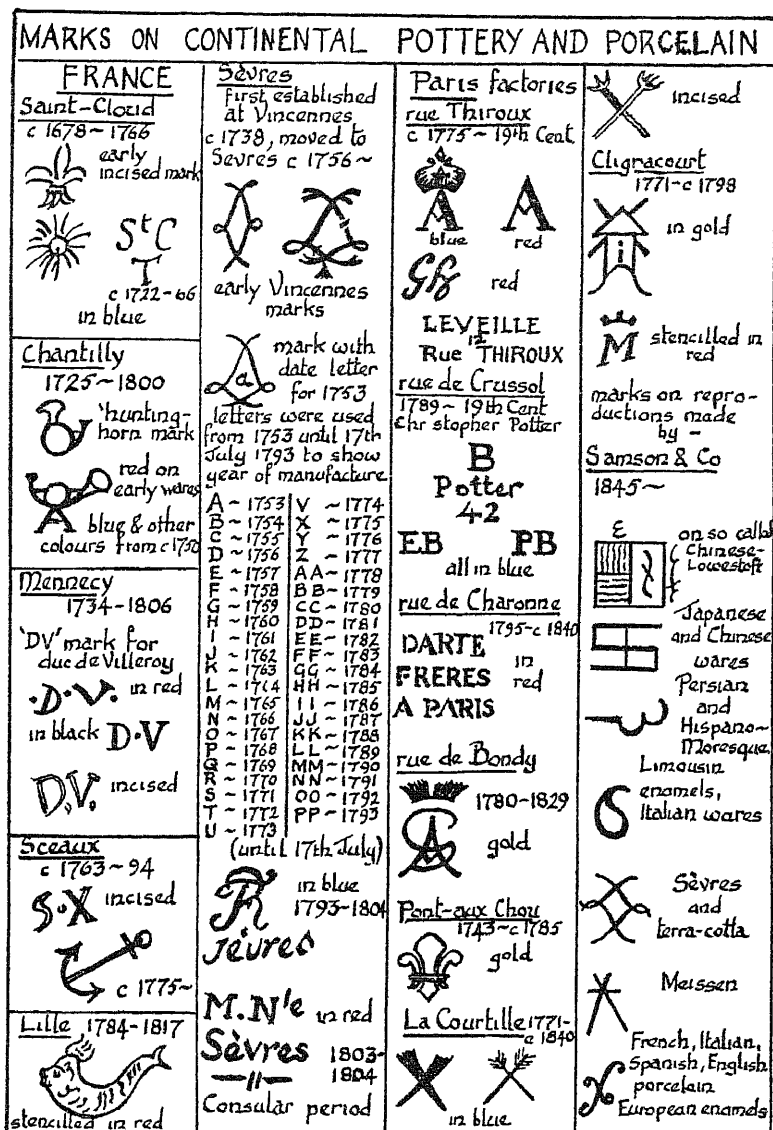 MARKS ON CONTINENTAL POTTERY AND PORCELAIN
FRANCE
Saint-Cloud
c 1678~1766
early
incised mark
StC
T
c 1722-66
in blue
Chantilly
1725~1800
'hunting-
horn mark
red on
early wares
blue & other
colours from c1750
Mennecy
1734-1806
'DV' mark for
duc de Villeroy
·D·V· in red
in black D·V
D,V. incised
Sceaux
c 1763~94
S·X incised
c 1775~
Lille 1784-1817
stencilled in red
Sèvres
first established
at Vincennes
c 1738, moved to
Sevres c 1756~
early Vincennes
marks
a
mark with
date letter
for 1753
letters were used
from 1753 until 17th
July 1793 to show
year of manufacture
A ~ 1753 V ~ 1774
B ~ 1754 X ~ 1775
C ~ 1755 Y ~ 1776
D ~ 1756 Z ~ 1777
E ~ 1757 AA ~ 1778
F ~ 1758 BB ~ 1779
G ~ 1759 CC ~ 1780
H ~ 1760 DD ~ 1781
I ~ 1761 EE ~ 1782
J ~ 1762 FF ~ 1783
K ~ 1763 GG ~ 1784
L ~ 1764 HH ~ 1785
M ~ 1765 II ~ 1786
N ~ 1766 JJ ~ 1787
O ~ 1767 KK ~ 1788
P ~ 1768 LL ~ 1789
Q ~ 1769 MM ~ 1790
R ~ 1770 NN ~ 1791
S ~ 1771 OO ~ 1792
T ~ 1772 PP ~ 1793
U ~ 1773
(until 17th July)
in blue
1793-1804
Sèvres
M.Nle in red
Sèvres 1803-
1804
Consular period
Paris factories
rue Thiroux
c 1775~19th Cent.
A A
blue red
red
LEVEILLE
12
Rue THIROUX
rue de Crussol
1789~19th Cent
Chr stopher Potter
B
Potter
42
EB PB
all in blue
rue de Charonne
1795-c 1840
DARTE
FRERES
A PARIS
in
red
rue de Bondy
1780-1829
gold
Pont-aux Chou
1743~c1785
gold
La Courtille 1771-
c 1840
in blue
incised
Cligracourt
1771-c 1798
in gold
M stencilled in
red
marks on repro-
ductions made
by -
Samson & Co
1845~
on so called
Chinese-
Lowestoft
Japanese
and Chinese
wares
Persian
and
Hispano-
Moresque
Limousin
enamels,
Italian wares
Sèvres
and
terra-cotta
Meissen
French, Italian,
Spanish, English
porcelain
European enamels